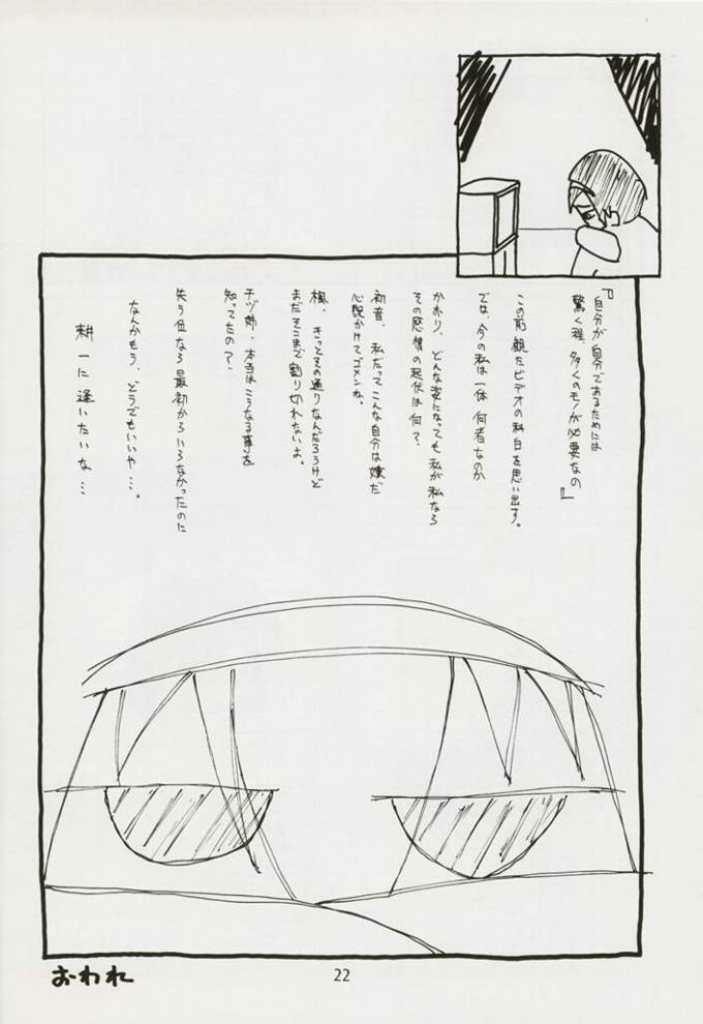 『自分が自分であるためには
驚く程、多くのモノが必要なの』
この前観たビデオの科白を思い出す。
では、今の私は一体何者なのか
かおり、どんな姿になっても私が私なら
その感情の起伏は何?
初音、私だってこんな自分は嫌だ
心配かけてゴメンね。
楓、きっとその通りなんだろうけど
まだそこまで割り切れないよ。
千ヅ姉、本当はこうなる事を
知ってたの?
失う位なら最初からいらなかったのに
なんかもう、どうでもいいや…。
耕一に逢いたいな…
おわれ
22